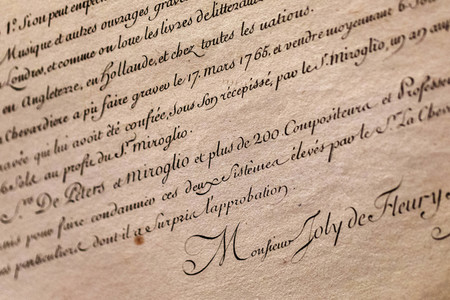 1.º Si on peut empêcher
Musique et autres ouvrages gravés
Londres, et comme on loue les livres de littérature
en Angleterre, en Hollande, et chez toutes les nations.
Chevardiere a pû faire graver le 17. mars 1765, et vendre moyennant 6 Sols
gravée qui lui avoit été confiée, sous son récépissé, par le S.r miroglio, un an
6 Sols au profit du S.r miroglio.
S.rs De Péters et miroglio et plus de 200 Compositeurs et Professeurs
unis pour faire condamner ces deux Sistêmes élevés par le S.r La Chevardiere
particuliers dont il a Surpris l'approbation.
Monsieur Joly de Fleury